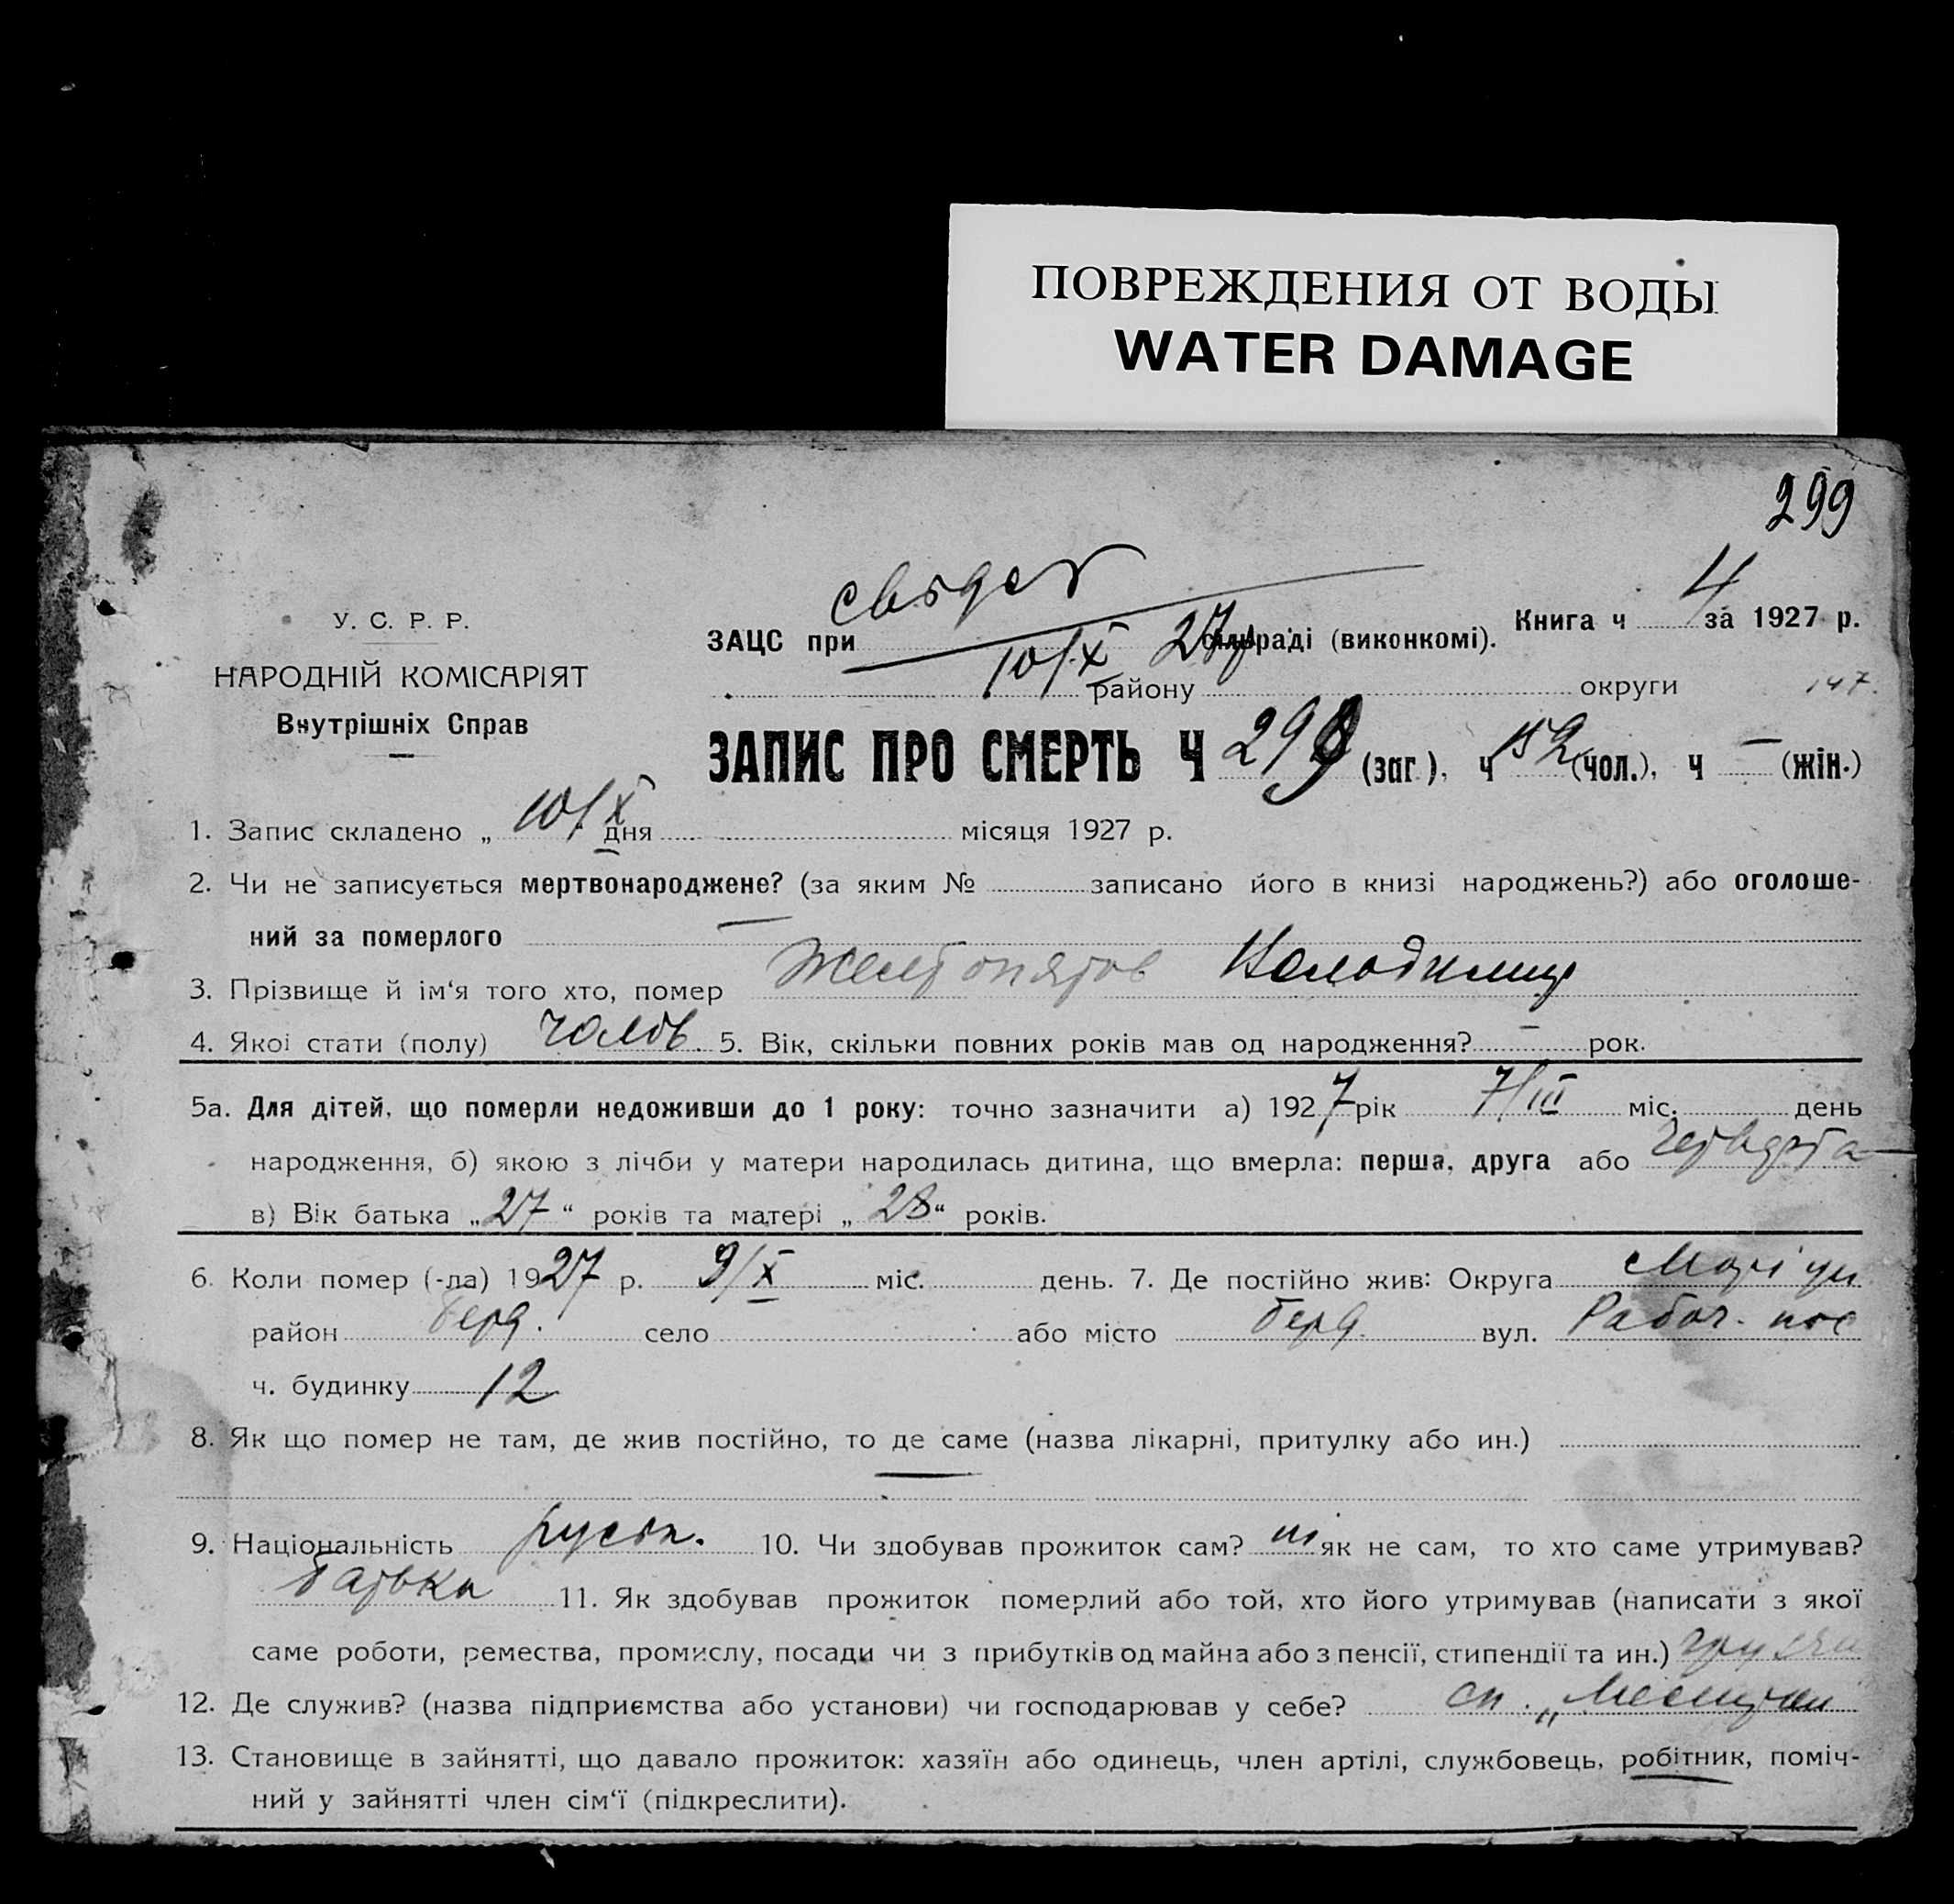 ПОВРЕЖДЕНИЯ ОТ ВОДЫ
WATER DAMAGE
299
У. С. Р. Р.
НАРОДНІЙ КОМІСАРІЯТ
Внутрішніх Справ
Книга ч 4 за 1927 р.
ЗАЦС при 10/X 27 сільраді (виконкомі).
району округи 147.
ЗАПИС ПРО СМЕРТЬ Ч 299 (заг.), ч 152 (чол.), ч – (жін.)
1. Запис складено „ 10/X дня місяця 1927 р.
2. Чи не записується мертвонароджене? (за яким № записано його в книзі народжень?) або оголоше-
ний за померлого —
3. Прізвище й ім‘я того хто, помер
4. Якої стати (полу) чолов. 5. Вік, скільки повних років мав од народження? – рок.
5а. Для дітей, що померли недоживши до 1 року: точно зазначити а) 1927 рік 7/III міс. день
народження, б) якою з лічби у матери народилась дитина, що вмерла: перша, друга або четверта
в) Вік батька „27“ років та матері „28“ років.
6. Коли помер (-ла) 1927 р. 9/X міс. день. 7. Де постійно жив: Округа Маріуп
район берд. село або місто берд. вул. Рабоч. пос
ч. будинку 12
8. Як що помер не там, де жив постійно, то де саме (назва лікарні, притулку або ин.)
—
9. Національність руськ. 10. Чи здобував прожиток сам? ні як не сам, то хто саме утримував?
батько 11. Як здобував прожиток померлий або той, хто його утримував (написати з якої
саме роботи, ремества, промислу, посади чи з прибутків од майна або з пенсії, стипендії та ин.)
12. Де служив? (назва підприємства або установи) чи господарював у себе?
13. Становище в зайнятті, що давало прожиток: хазяїн або одинець, член артілі, службовець, робітник, поміч-
ний у зайнятті член сім‘ї (підкреслити).